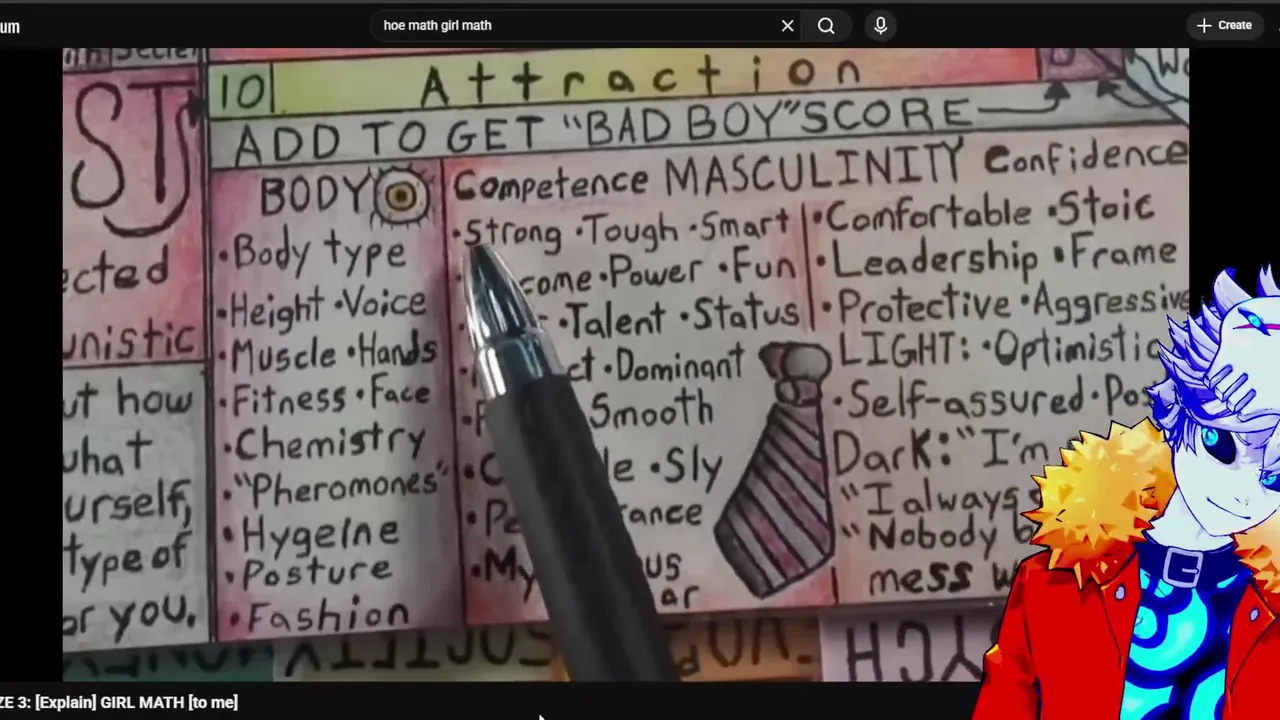 um
hoe math girl math
Create
ST
10
Attraction
ADD TO GET "BAD BOY" SCORE
ected
unistic
ut how
what
urself,
type of
or you.
BODY
•Body type
•Height •Voice
•Muscle •Hands
•Fitness •Face
•Chemistry
•"Pheromones"
•Hygeine
•Posture
•Fashion
Competence MASCULINITY Confidence
•Strong •Tough •Smart
come •Power •Fun
•Talent •Status
ct •Dominant
Smooth
le •Sly
rance
us
ar
•Comfortable •Stoic
•Leadership •Frame
•Protective •Aggressive
LIGHT: •Optimistic
•Self-assured •Pos
Dark: "I'm
"I always
"Nobody b
mess w
ZE 3: [Explain] GIRL MATH [to me]